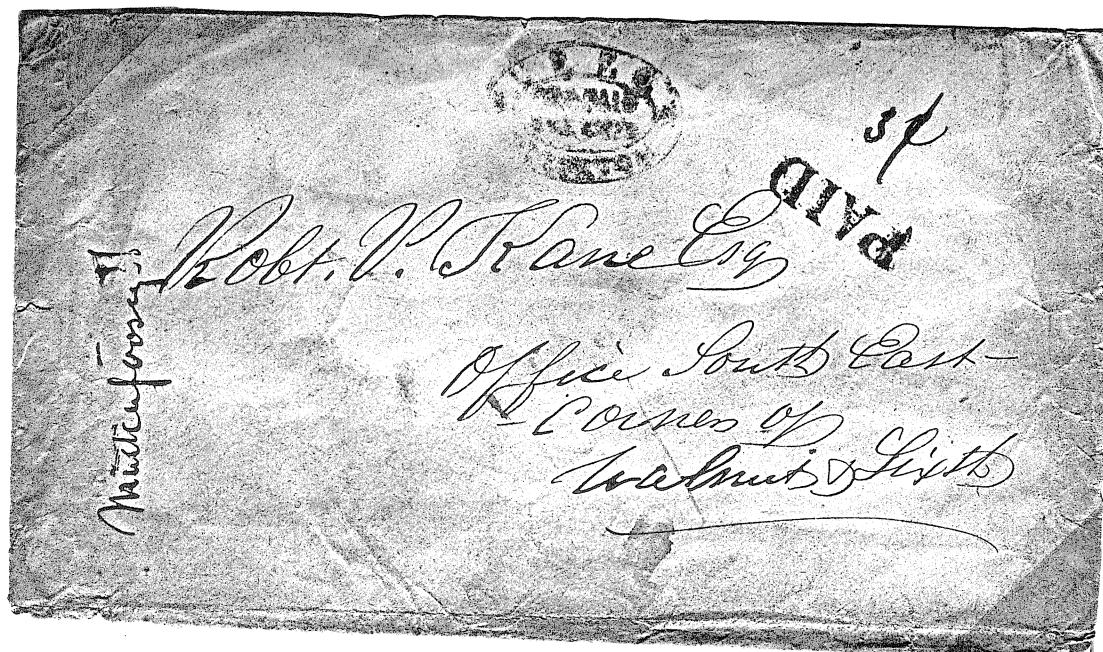 3¢
PAID
Robt. P. Kane Esq
Office South East
Corner of
Walnut & Sixth